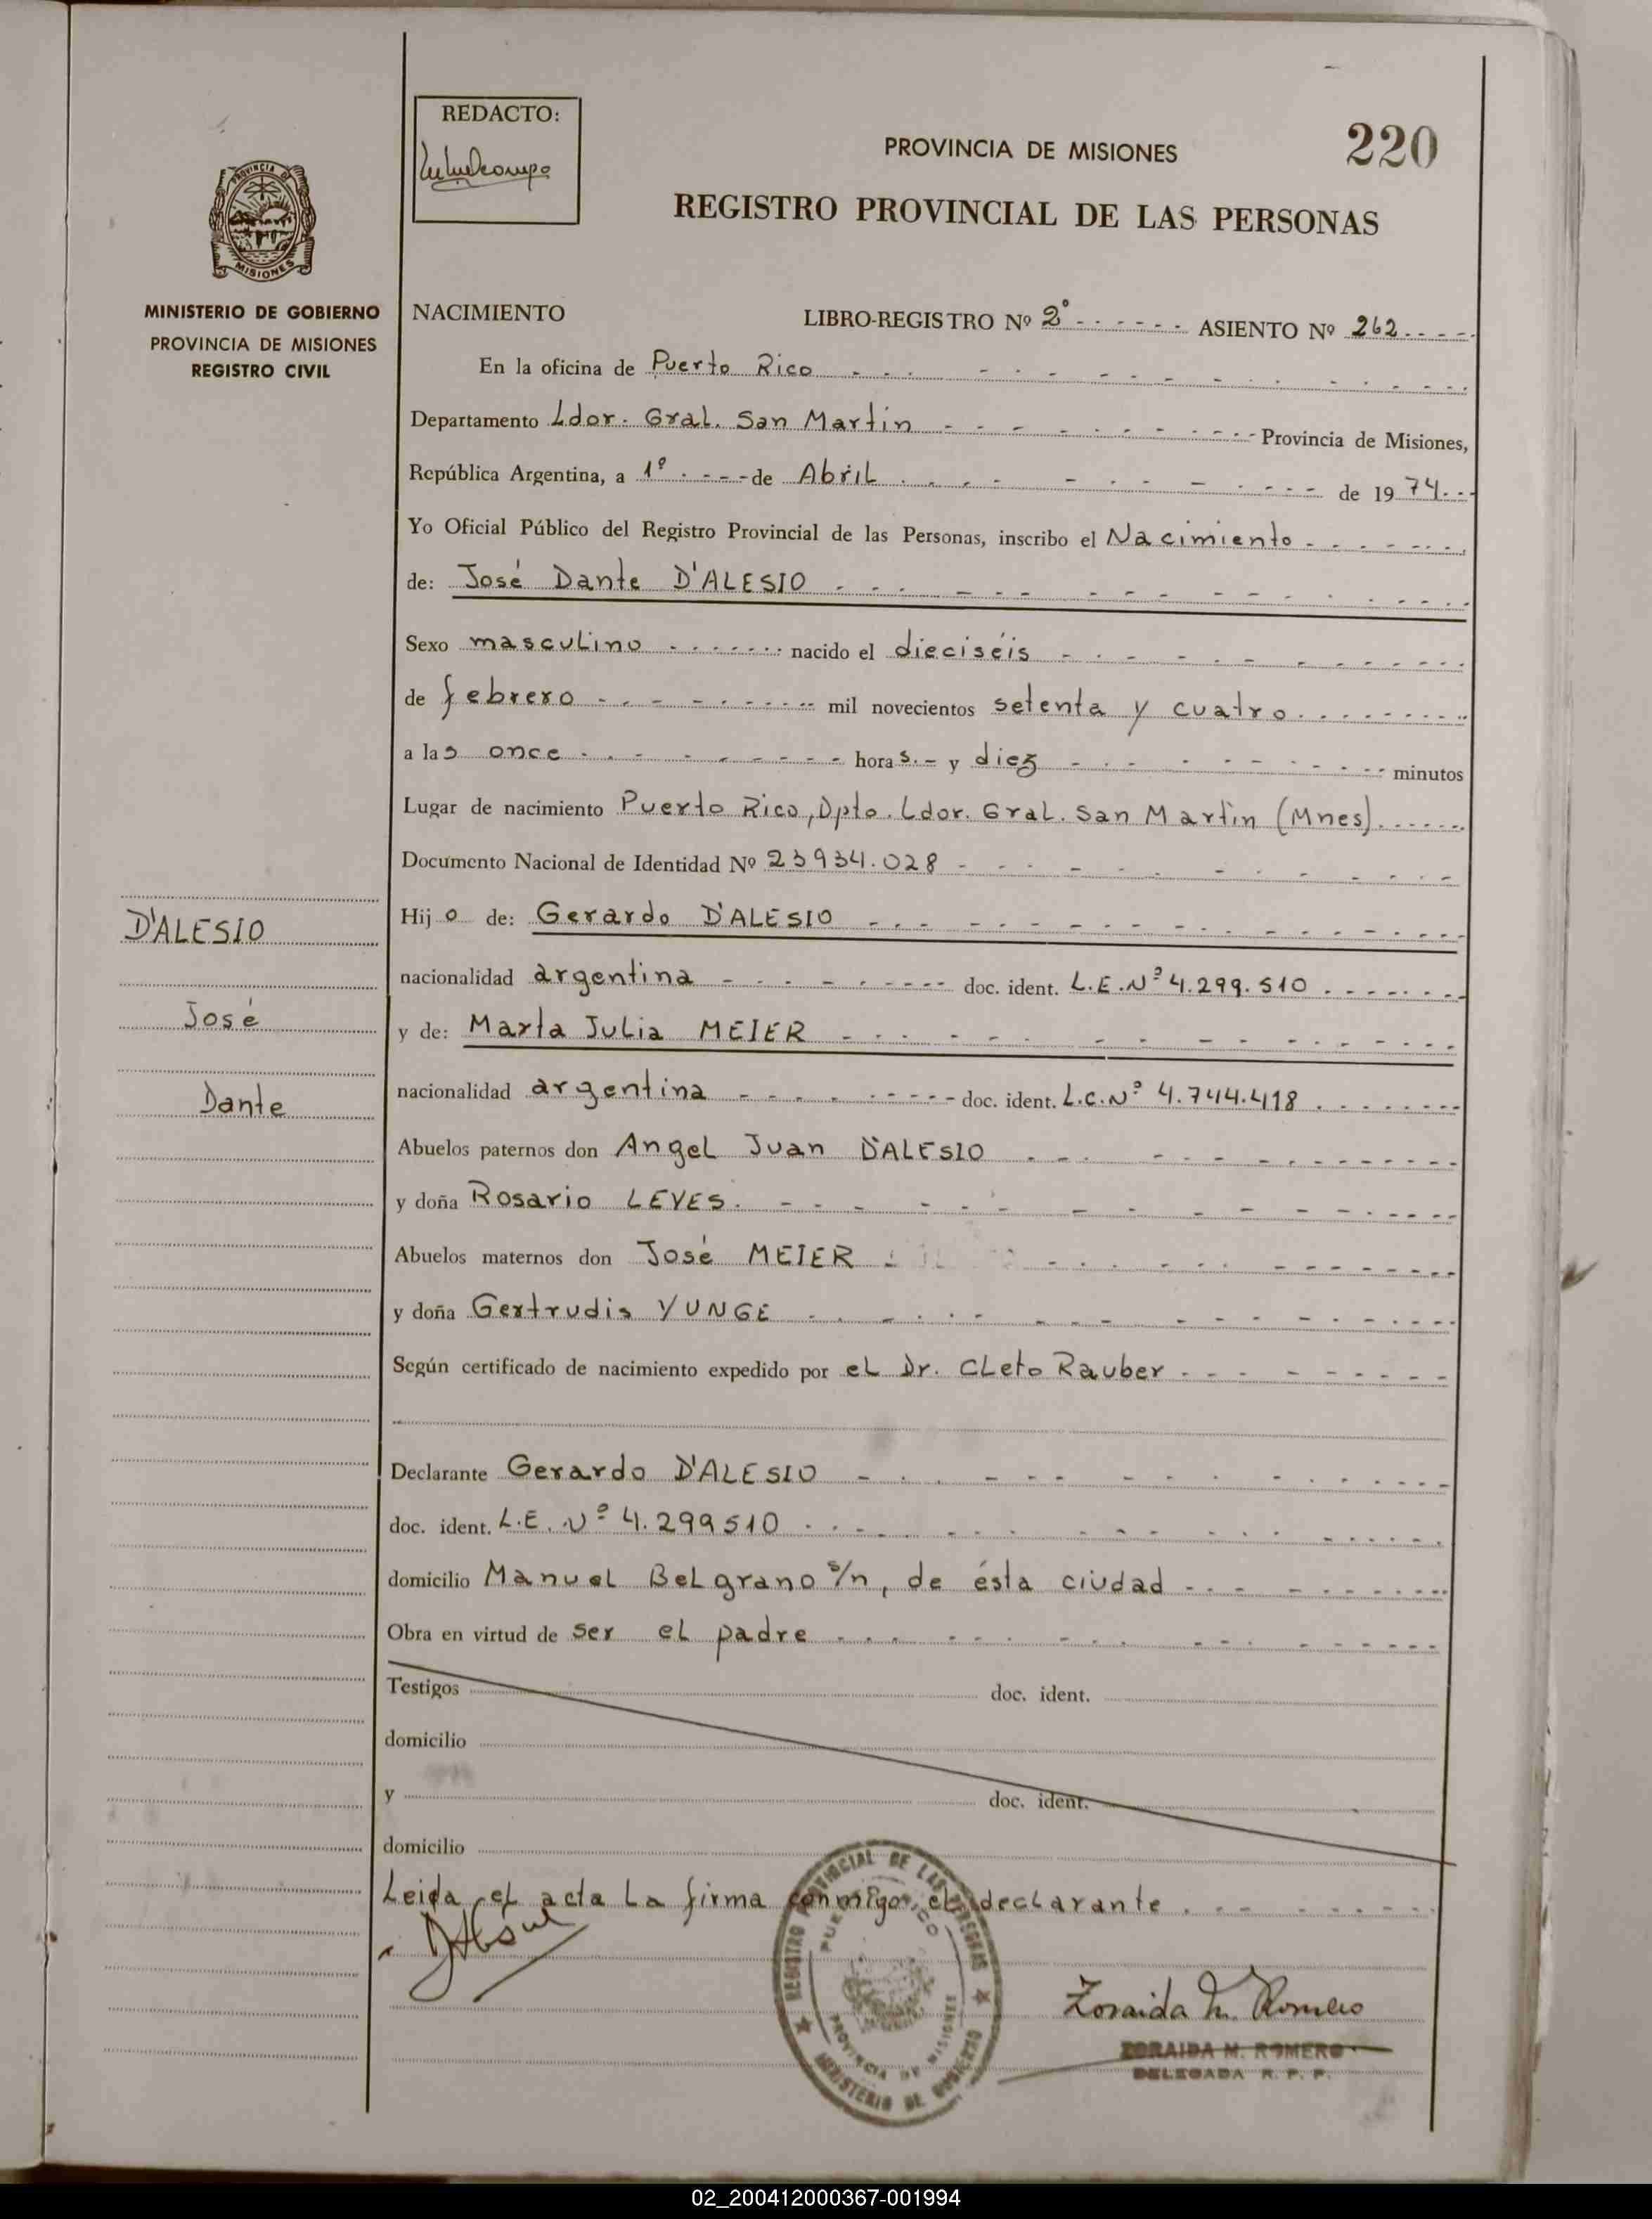 REDACTO:
PROVINCIA DE MISIONES
220
REGISTRO PROVINCIAL DE LAS PERSONAS
PROVINCIA DE
MISIONES
MINISTERIO DE GOBIERNO
PROVINCIA DE MISIONES
REGISTRO CIVIL
NACIMIENTO LIBRO-REGISTRO Nº 2º ASIENTO Nº 262
En la oficina de Puerto Rico
Departamento Ldor. Gral. San Martín Provincia de Misiones,
República Argentina, a 1º de Abril de 1974
Yo Oficial Público del Registro Provincial de las Personas, inscribo el Nacimiento
de: José Dante D'ALESIO
Sexo masculino nacido el dieciséis
de febrero mil novecientos setenta y cuatro
a las once horas.- y diez minutos
Lugar de nacimiento Puerto Rico, Dpto. Ldor. Gral. San Martín (Mnes)
Documento Nacional de Identidad Nº 23934.028
Hijo de: Gerardo D'ALESIO
nacionalidad argentina doc. ident. L.E.Nº 4.299.510
y de: Marta Julia MEIER
nacionalidad argentina doc. ident. L.C.Nº 4.744.418
Abuelos paternos don Angel Juan D'ALESIO
y doña Rosario LEYES.
Abuelos maternos don José MEIER
y doña Gertrudis YUNGE
Según certificado de nacimiento expedido por el Dr. Cleto Rauber
Declarante Gerardo D'ALESIO
doc. ident. L.E. Nº 4.299510
domicilio Manuel Belgrano s/n, de ésta ciudad
Obra en virtud de ser el padre
Testigos doc. ident.
domicilio
y doc. ident.
domicilio
Leida el acta la firma conmigo, el declarante
D'ALESIO
José
Dante
REGISTRO PROVINCIAL DE LAS PERSONAS
PUERTO RICO
PROVINCIA DE MISIONES
MINISTERIO DE GOBIERNO
Zoraida M. Romero
ZORAIDA M. ROMERO
DELEGADA R. P. P.
02_200412000367-001994